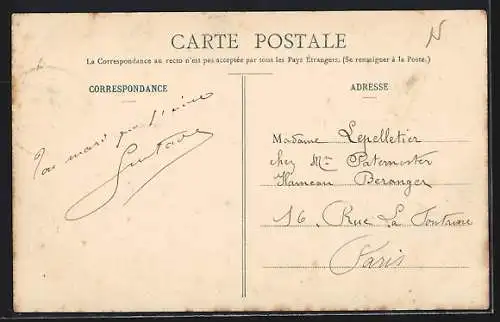 CARTE POSTALE
La Correspondance au recto n'est pas acceptée par tous les Pays Étrangers. (Se renseigner à la Poste.)
CORRESPONDANCE
ADRESSE
Ton mari qui t'aime
Gustave
Madame Lepelletier
chez Mme Paternoster
Hameau Béranger
16, Rue La Fontaine
Paris